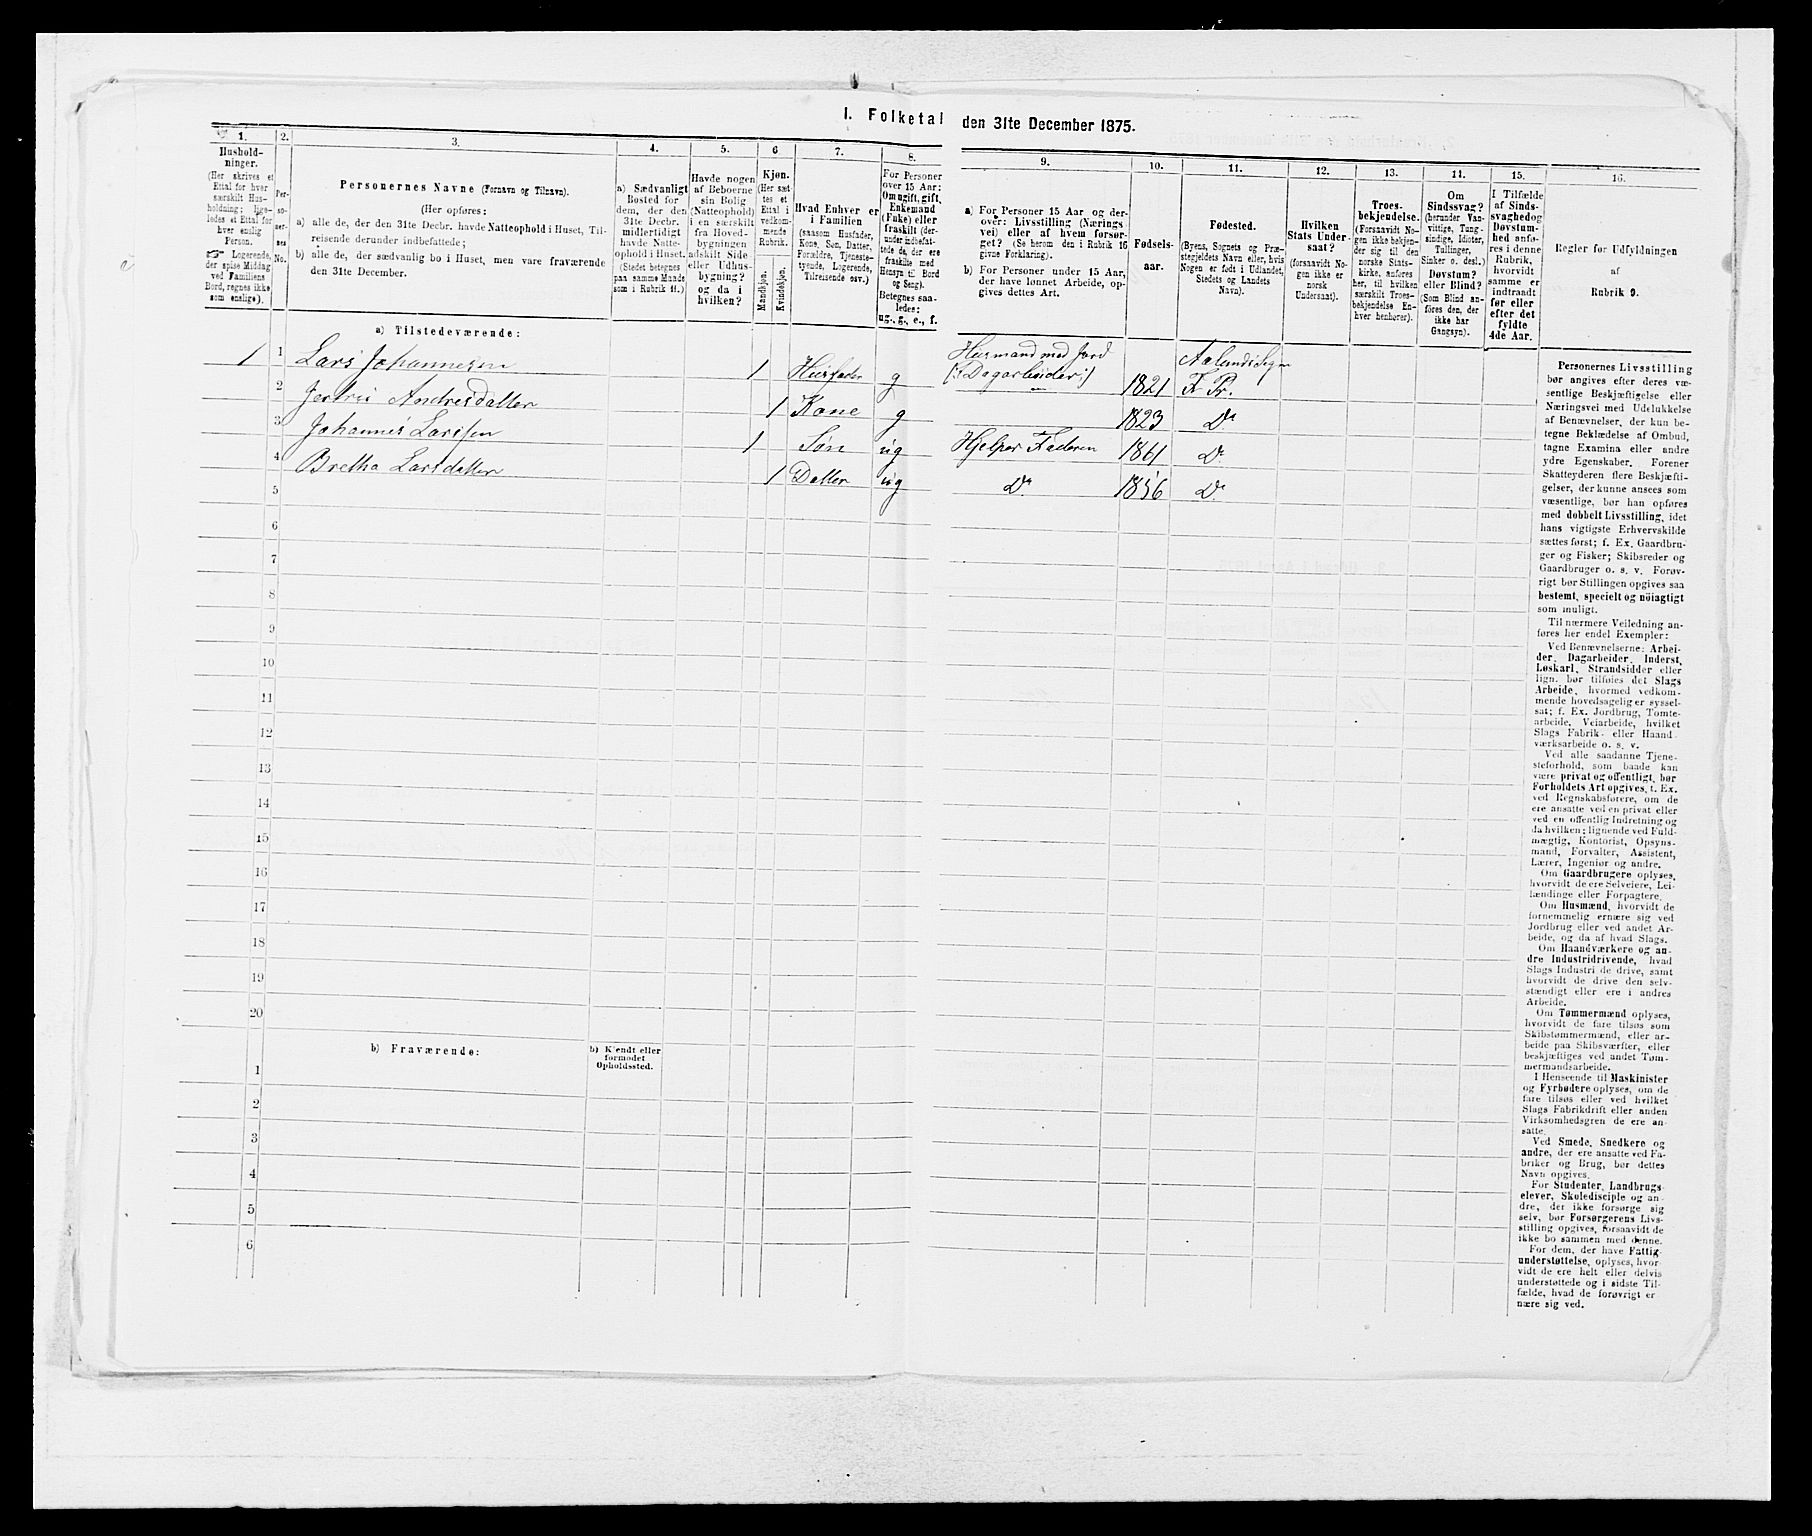 I. Folketal den 31te December 1875.
1. 2. 3. 4. 5. 6 7. 8. 9. 10. 11. 12. 13. 14. 15. 16.
Hushold-
ninger.
(Her skrives et
Ettal for hver
særskilt Hus-
holdning; lige-
ledes et Ettal for
hver enslig
Person.
☞ Logerende,
der spise Middag
ved Familiens
Bord, regnes ikke
som enslige).
Per-
so-
ner-
nes
No.
Personernes Navne (Fornavn og Tilnavn).
(Her opføres:
a) alle de, der den 31te Decbr. havde Natteophold i Huset, Til-
reisende derunder indbefattede;
b) alle de, der sædvanlig bo i Huset, men vare fraværende
den 31te December.
a) Sædvanligt
Bosted for
dem, der den
31te Decbr.
midlertidigt
havde Natte-
ophold i Huset.
(Stedet betegnes
paa samme Maade
som i Rubrik 11.)
Havde nogen
af Beboerne
sin Bolig
(Natteophold)
i en særskilt
fra Hoved-
bygningen
adskilt Side
eller Udhus-
bygning?
og da i
hvilken?
Kjøn.
(Her sæt-
tes et
Ettal i
vedkom-
mende
Rubrik.
Mandkjøn.
Kvindekjøn.
Hvad Enhver er
i Familien
(saasom Husfader,
Kone, Søn, Datter,
Forældre, Tjeneste-
tyende, Logerende,
Tilreisende osv.)
For Personer
over 15 Aar:
Om ugift, gift,
Enkemand
(Enke) eller
fraskilt (der-
under indbefat-
tede de, der ere
fraskilte med
Hensyn til Bord
og Seng).
Betegnes saa-
ledes:
ug., g., e., f.
a) For Personer 15 Aar og der-
over: Livsstilling (Nærings
vei) eller af hvem forsør-
get? (Se herom den i Rubrik 16
givne Forklaring).
b) For Personer under 15 Aar,
der have lønnet Arbeide, op-
gives dettes Art.
Fødsels-
aar.
Fødested.
(Byens, Sognets og Præ-
stegjeldets Navn eller, hvis
Nogen er født i Udlandet,
Stedets og Landets
Navn).
Hvilken
Stats Under-
saat?
(forsaavidt No-
gen ikke er
norsk
Undersaat).
Troes-
bekjendelse.
(Forsaavidt No-
gen ikke bekjen-
der sig til den
norske Stats-
kirke, anføres
her, til hvilken
særskilt Troes-
bekjendelse En-
hver henhører).
Om
Sindssvag?
(herunder Van-
vittige, Tung-
sindige, Idioter,
Tullinger,
Sinker o. desl.)
Døvstum?
eller Blind?
(Som Blind an-
føres den, der
ikke har
Gangsyn).
I Tilfælde
af Sinds-
svaghed og
Døvstum-
hed anfø-
res i denne
Rubrik,
hvorvidt
samme er
indtraadt
før eller
efter det
fyldte
4de Aar.
Regler før Udfyldningen
af
Rubrik 9.
a) Tilstedeværende:
1 1 Lars Johannesen 1 Husfader g Husmand med Jord (: Dagarbeider :) 1821 Aalunds Sogn F. Pr.
2 Jertrü Andresdatter 1 Kone g 1823 Do
3 Johannes Larssen 1 Søn ug Hjelper Faderen 1861 Do
4 Bretha Larsdatter 1 Datter ug Do. 1856 Do
5
6
7
8
9
10
11
12
13
14
15
16
17
18
19
20
b) Fraværende: b) Kjendt eller
formodet
Opholdssted.
1
2
3
4
5
6
Personernes Livsstilling
bør angives efter deres væ-
sentlige Beskjæftigelse eller
Næringsvei med Udelukkelse
af Benævnelser, der kun be-
tegne Beklædelse af Ombud,
tagne Examina eller andre
ydre Egenskaber. Forener
Skatteyderen flere Beskjæfti-
gelser, der kunne ansees som
væsentlige, bør han opføres
med dobbelt Livsstilling, idet
hans vigtigste Erhvervskilde
sættes først; f. Ex. Gaardbru-
ger og Fisker; Skibsreder og
Gaardbruger o. s. v. Forøv-
rigt bør Stillingen opgives saa
bestemt, specielt og nöiagtigt
som muligt.
Til nærmere Veiledning an-
føres her endel Exempler:
Ved Benævnelserne: Arbei-
der, Dagarbeider, Inderst,
Løskarl, Strandsidder eller
lign. bør tilføies det Slags
Arbeide, hvormed vedkom-
mende hovedsagelig er syssel-
sat; f. Ex. Jordbrug, Tomte-
arbeide, Veiarbeide, hvilket
Slags Fabrik- eller Haand
værksarbeide o. s. v.
Ved alle saadanne Tjene-
steforhold, som baade kan
være privat og offentligt, bør
Forholdets Art opgives, f. Ex.
ved Regnskabsførere, om de
ere ansatte ved en privat eller
ved en offentlig Indretning og
da hvilken; lignende ved Fuld-
mægtig, Kontorist, Opsyns-
mand, Forvalter, Assistent,
Lærer, Ingeniør og andre.
Om Gaardbrugere oplyses,
hvorvidt de ere Selveiere, Lei-
lændinge eller Forpagtere.
Om Husmænd, hvorvidt de
fornemmelig ernære sig ved
Jordbrug eller ved andet Ar-
beide, og da af hvad Slags.
Om Haandværkere og an-
dre Industridrivende, hvad
Slags Industri de drive, samt
hvorvidt de drive den selv-
stændigt eller ere i andres
Arbeide.
Om Tømmermænd oplyses,
hvorvidt de fare tilsøs som
Skibstømmermænd, eller ar-
beide paa Skibsværfter, eller
beskjæftiges ved andet Tøm-
mermandsarbeide.
I Henseende til Maskinister
og Fyrbødere oplyses, om de
fare tilsøs eller ved hvilket
Slags Fabrikdrift eller anden
Virksomhedsgren de ere an-
satte.
Ved Smede, Snedkere og
andre, der ere ansatte ved Fa-
briker og Brug, bør dettes
Navn opgives.
For Studenter, Landbrugs-
elever, Skoledisciple og an-
dre, der ikke forsørge sig
selv, bør Forsørgerens Livs-
stilling opgives, forsaavidt de
ikke bo sammen med denne.
For dem, der have Fattig-
understøttelse, oplyses, hvor-
vidt de ere helt eller delvis
understøttede og i sidste Til-
fælde, hvad de forøvrigt er
nære sig ved.